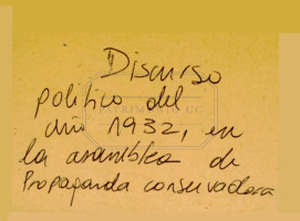 Discurso
político del
PATRIMONIO UC
año 1932, en
la asamblea de
Propaganda conservadora